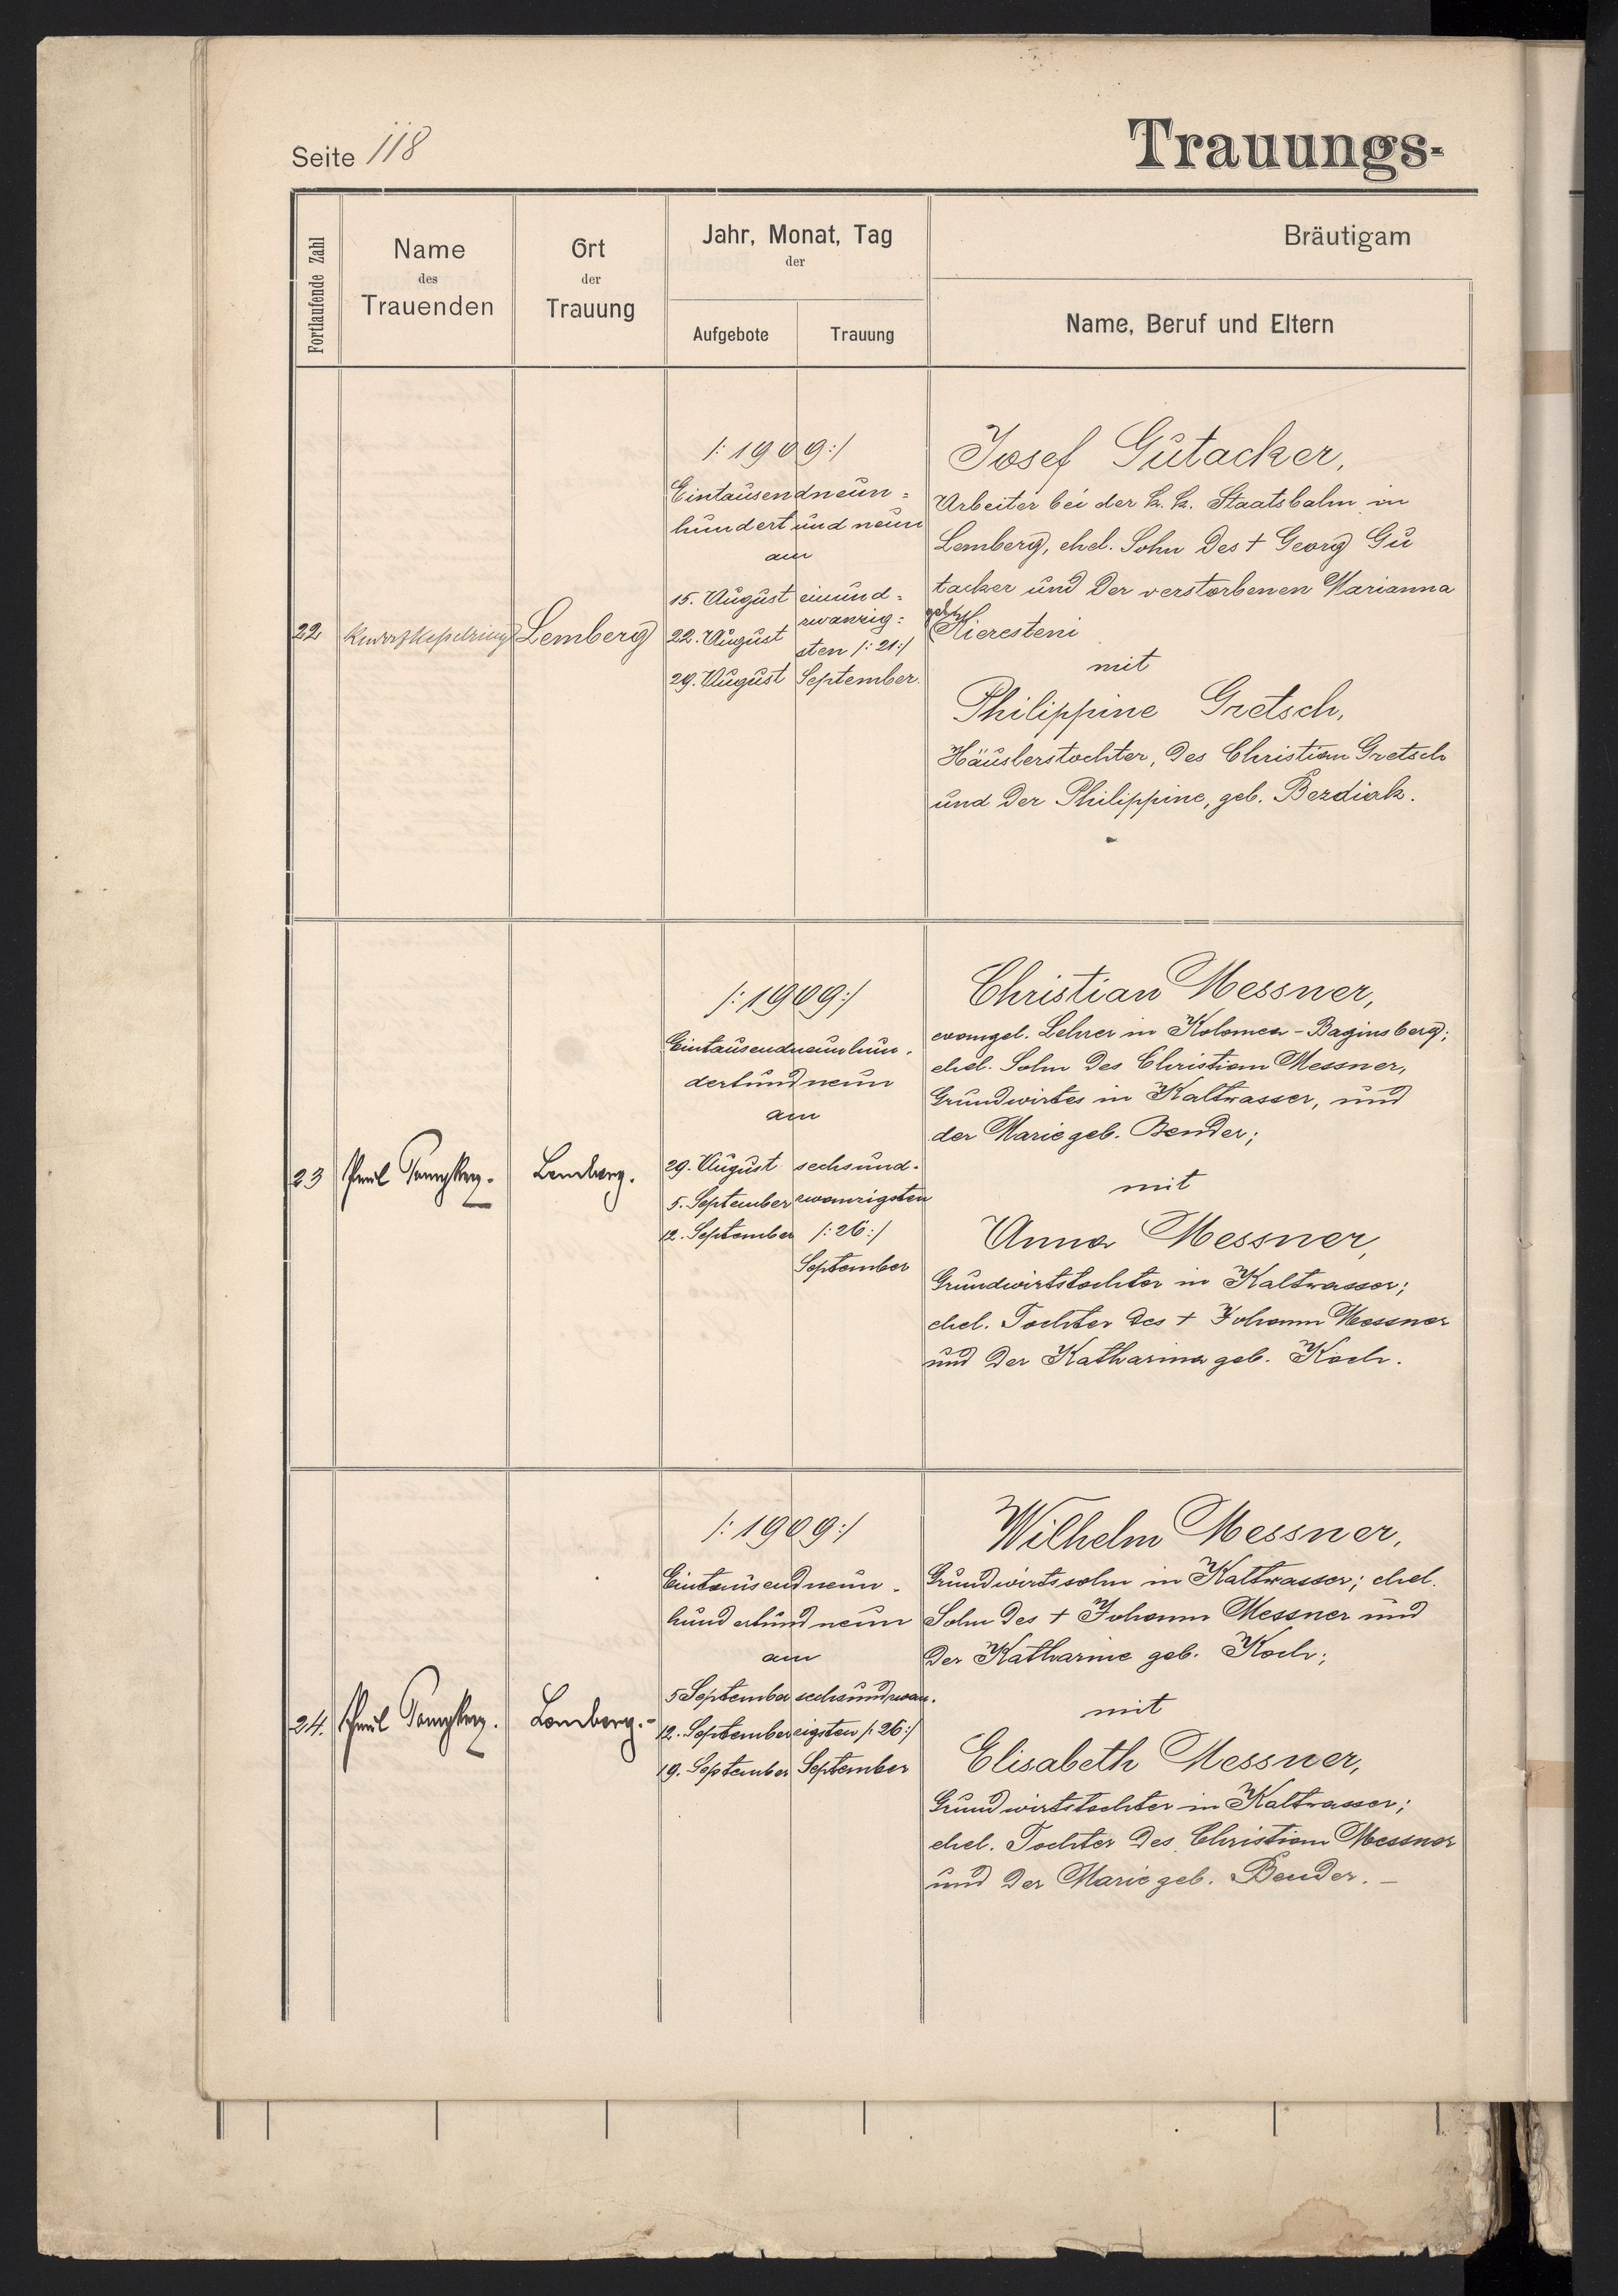 Seite 118
Trauungs-
Fortlaufende Zahl
Name
des
Trauenden
Ort
der
Trauung
Jahr, Monat, Tag
der
Aufgebote
Trauung
Bräutigam
Name, Beruf und Eltern
22
Lemberg
/: 1909 :/
Eintausendneun=
hundert und neun
am
15. August
22. August
29. August
einund=
zwanzig=
sten /: 21 :/
September.
Josef Gutacker,
Arbeiter bei der k. k. Staatsbahn in
Lemberg, ehel. Sohn des † Georg Gu
tacker und der verstorbenen Marianna
mit
Philippine Gretsch,
Häuslerstochter, des Christian Gretsch
und der Philippine, geb. Bezdiak.
23
Lemberg.
/: 1909 :/
Eintausendneunhun-
dertundneun
am
29. August
5. September
12. September
sechsund-
zwanzigsten
/: 26 :/
September
Christian Messner,
evangel. Lehrer in Kolomea - Baginsberg;
ehel. Sohn des Christian Messner,
Grundwirtes in Kaltwasser, und
der Marie geb. Bender;
mit
Anna Messner,
Grundwirtstochter in Kaltwasser;
ehel. Tochter des † Johann Messner
und der Katharina geb. Koch.
24.
Lemberg.-
/: 1909 :/
Eintausendneun-
hundertundneun
am
5 September
12. September
19. September
sechsundzwan-
zigsten /: 26 :/
September
Wilhelm Messner,
Grundwirtssohn in Kaltwasser; ehel.
Sohn des † Johann Messner und
der Katharine geb. Koch;
mit
Elisabeth Messner,
Grundwirtstochter in Kaltwasser;
ehel. Tochter des Christian Messner
und der Marie geb. Bender. —